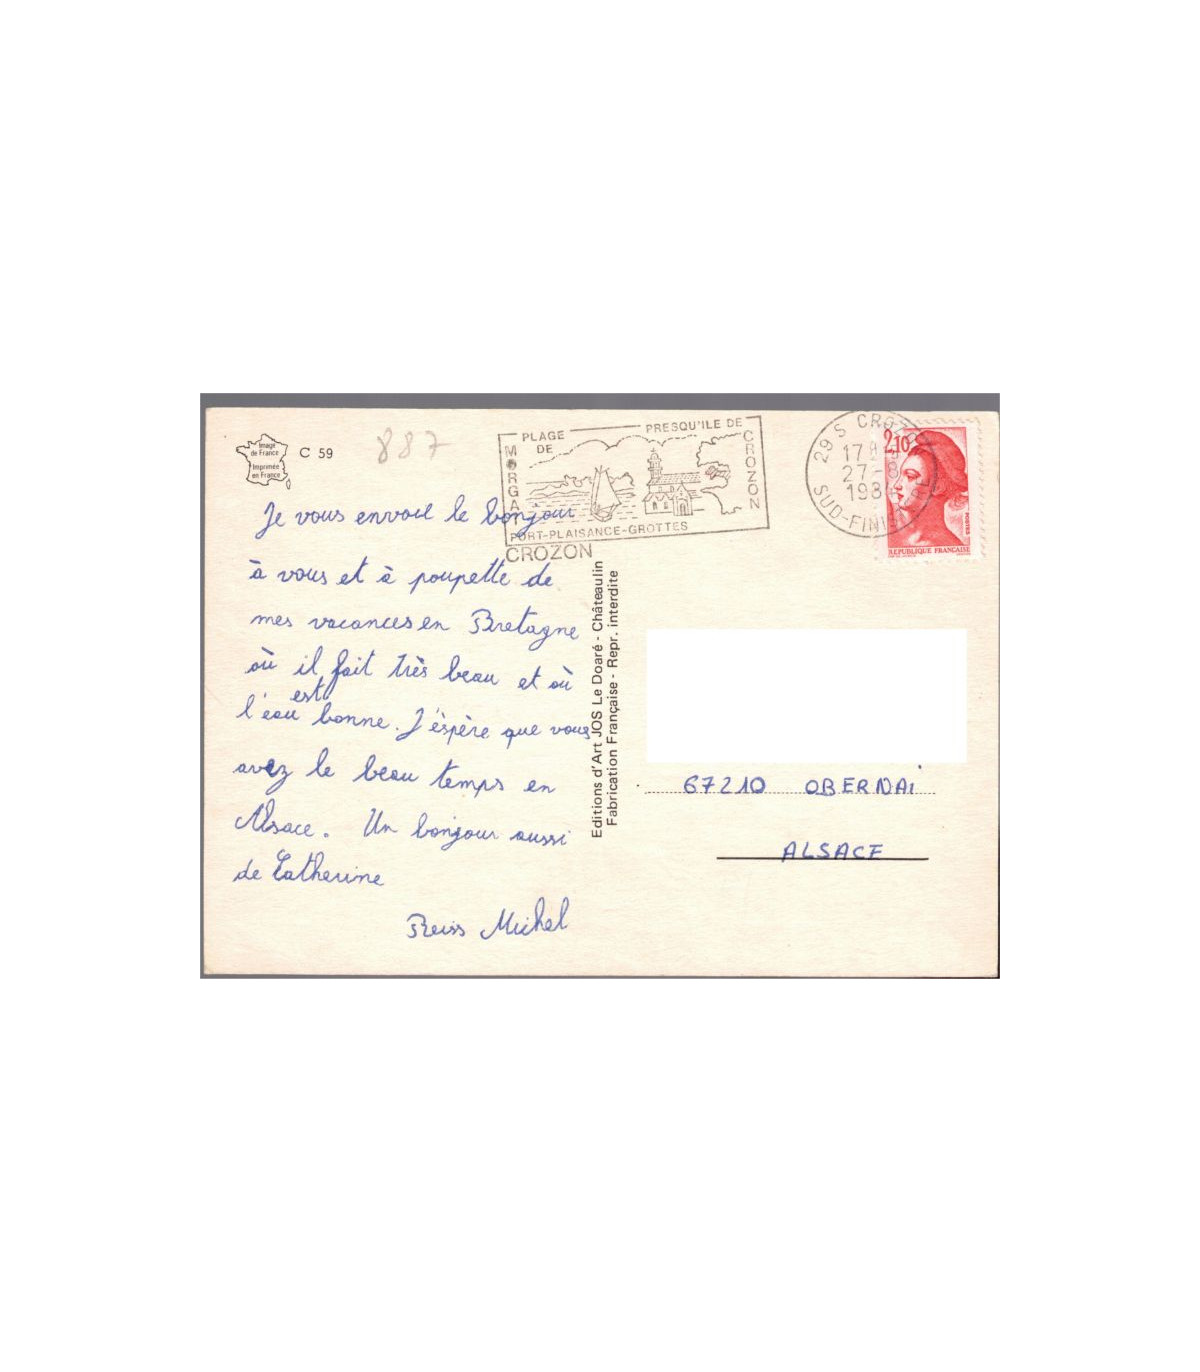 Image
de France
Imprimée
en France
C 59
887
PLAGE
DE
MORGAT
PRESQU'ILE DE
CROZON
PORT-PLAISANCE-GROTTES
CROZON
29 S CROZON
27-8
SUD-FINIST
2,10
POSTES
REPUBLIQUE FRANÇAISE
Je vous envoie le bonjour
à vous et à poupette de
mes vacances en Bretagne
où il fait très beau et où
est
l'eau bonne. J'éspère que vous
avez le beau temps en
Alsace. Un bonjour aussi
de Catherine
Reiss Michel
Editions d'Art JOS Le Doaré - Châteaulin
Fabrication Française - Repr. interdite
67210 OBERNAi
ALSACE